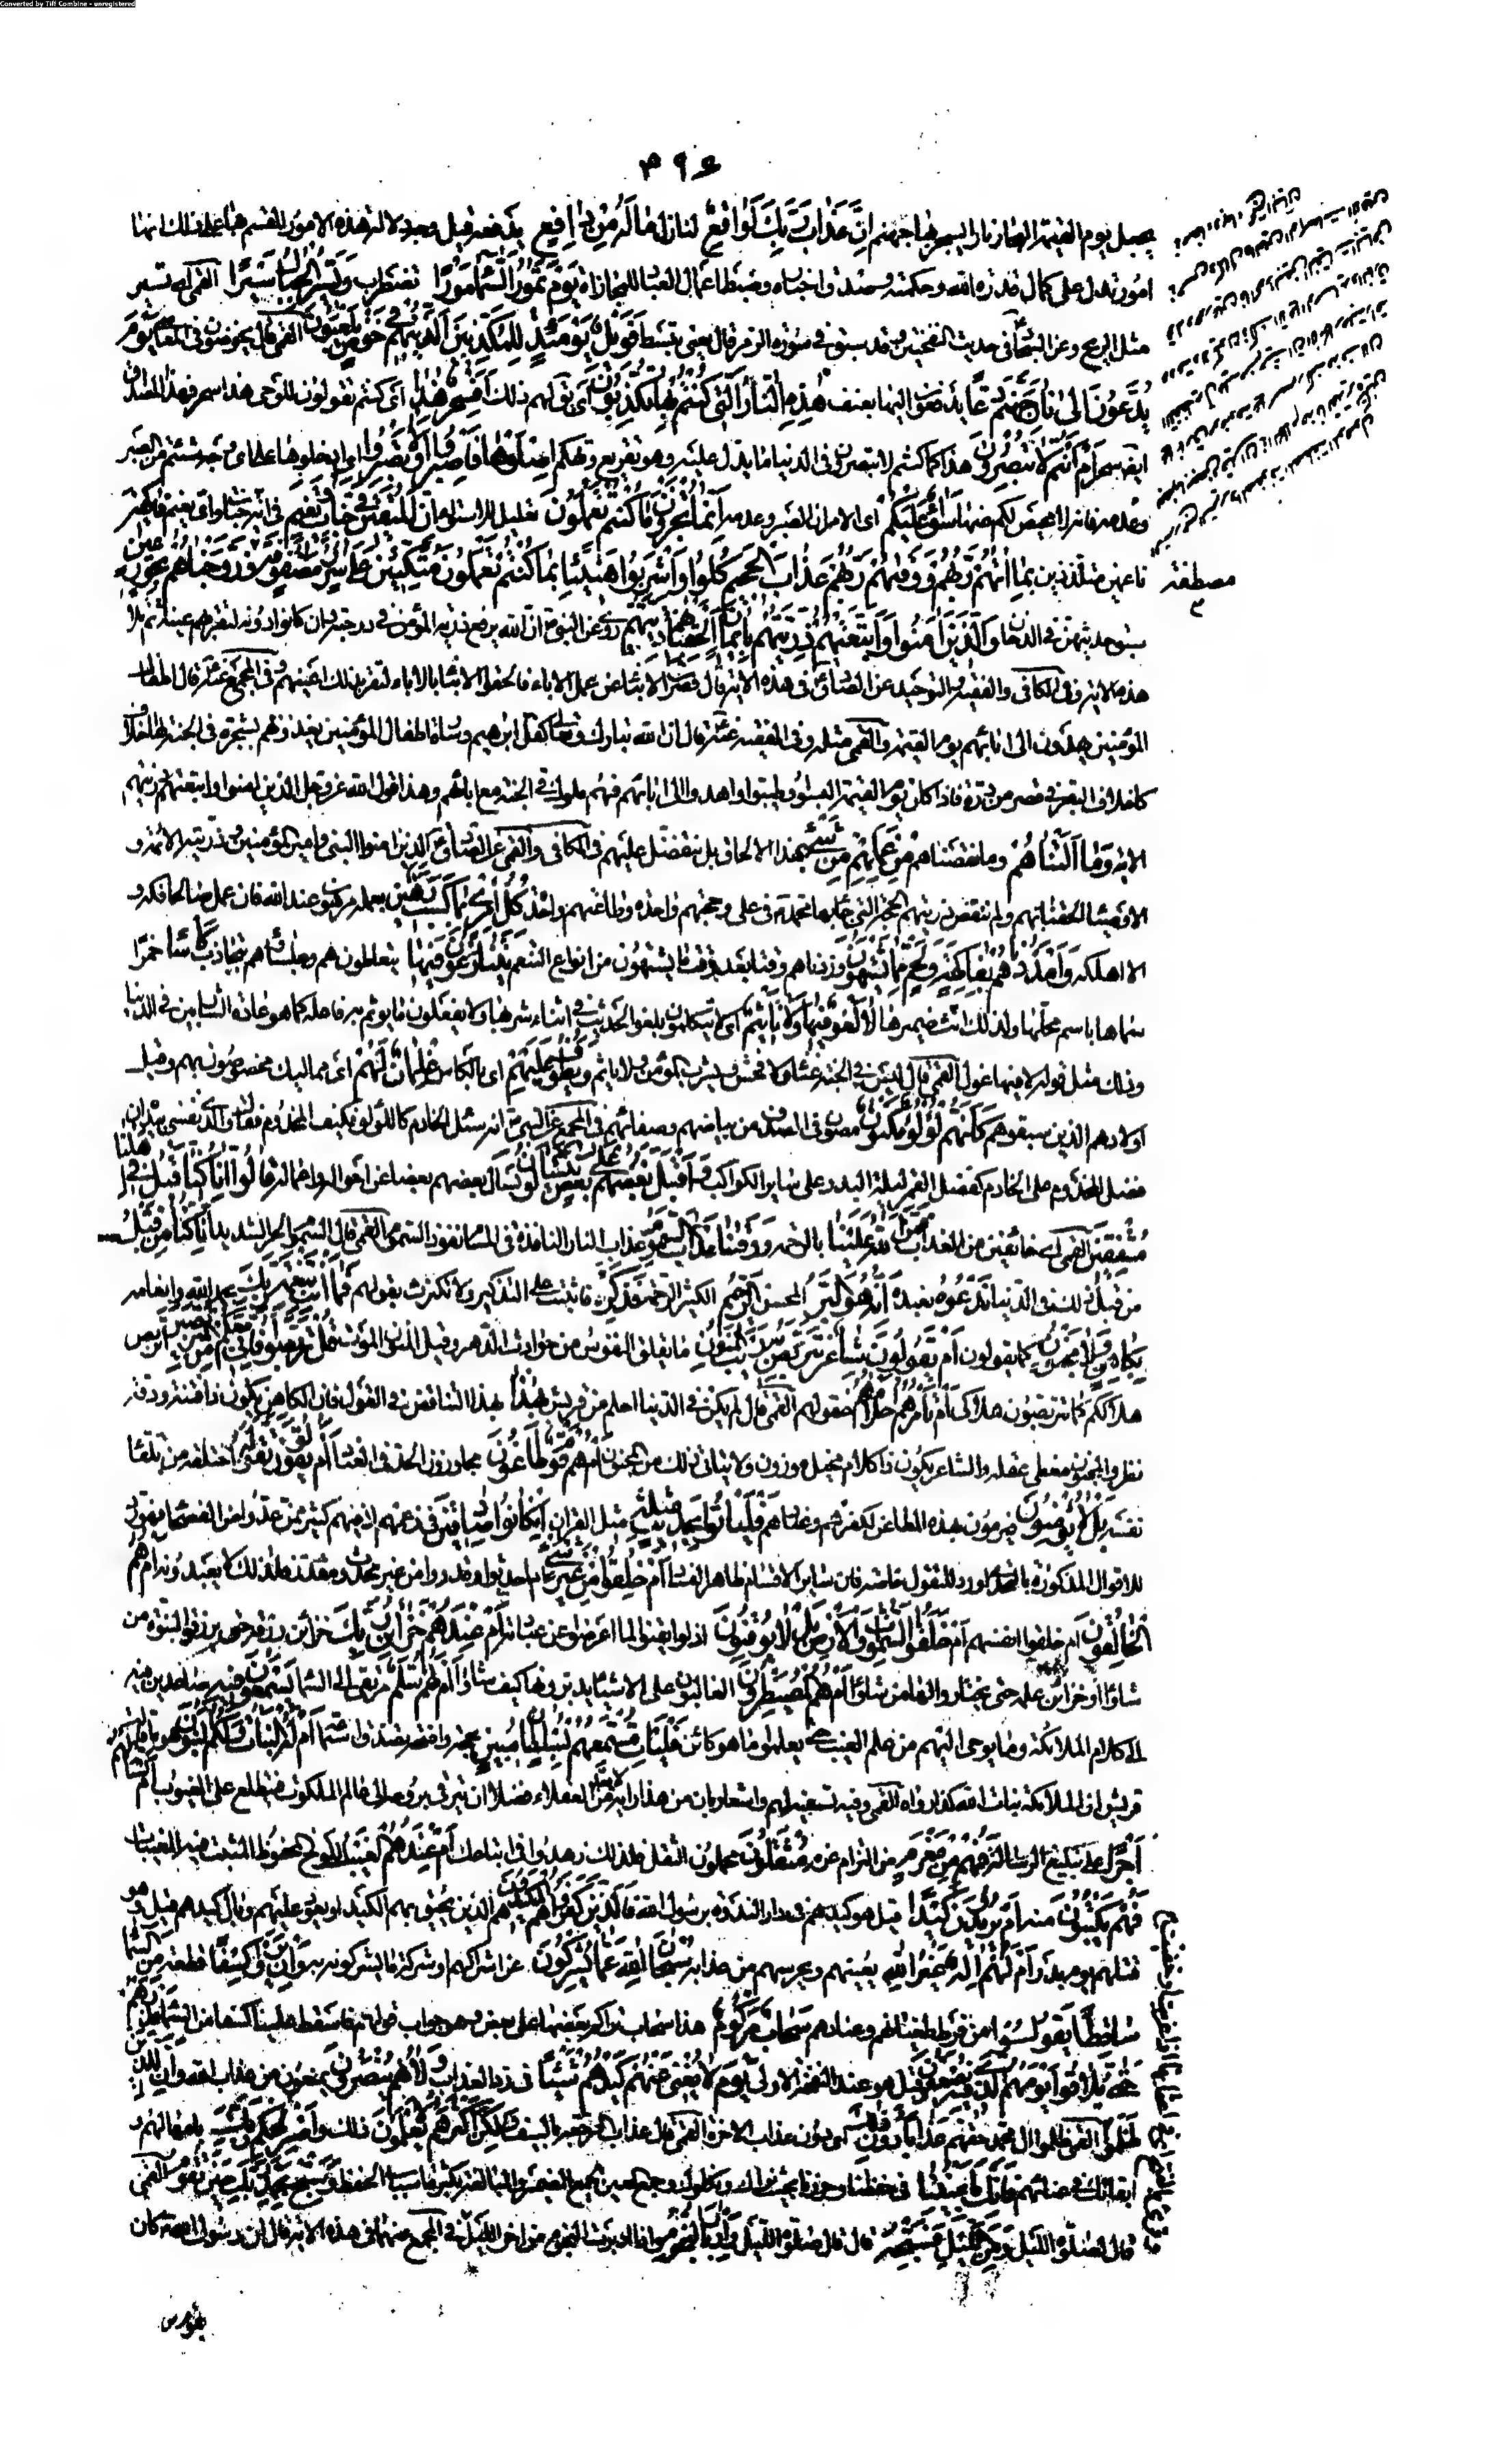 Converted by Tiff Combine - unregistered
٣٩٤
يجعل يوم القيمة البحار نارا يسجر بها جهنم إِنَّ عَذَابَ رَبِّكَ لَوَاقِعٌ لنازل مَا لَهُ مِنْ دَافِعٍ يدفعه قيل وجه دلالة هذه الامور المقسم بها على ذلك انها
امور تدل على كمال قدرة الله وحكمته وصدق اخباره وضبط اعمال العباد للمجازاة يَوْمَ تَمُورُ السَّمَاءُ مَوْرًا تضطرب وَتَسِيرُ الْجِبَالُ سَيْرًا القمى اى تسير
مثل الريح وعن السجاد فى حديث النفختين وقد سبق فى سورة الزمر قال يعنى تبسط فَوَيْلٌ يَوْمَئِذٍ لِلْمُكَذِّبِينَ الَّذِينَ هُمْ فِي خَوْضٍ يَلْعَبُونَ القمى قال يخوضون فى المعاصى يَوْمَ
يُدَعُّونَ إِلَى نَارِ جَهَنَّمَ دَعًّا يدفعون اليها بعنف هَذِهِ النَّارُ الَّتِي كُنْتُمْ بِهَا تُكَذِّبُونَ اى يقال لهم ذلك أَفَسِحْرٌ هَذَا اى كنتم تقولون للوحى هذا سحر فهذا المصداق
ايضا سحر أَمْ أَنْتُمْ لَا تُبْصِرُونَ هذا كما كنتم لا تبصرون فى الدنيا ما يدل عليه وهو تقريع وتهكم اصْلَوْهَا فَاصْبِرُوا أَوْ لَا تَصْبِرُوا اى ادخلوها على اى وجه شئتم من الصبر
وعدمه فانه لا محيص لكم عنها سَوَاءٌ عَلَيْكُمْ اى الامران الصبر وعدمه إِنَّمَا تُجْزَوْنَ مَا كُنْتُمْ تَعْمَلُونَ تعليل للاستواء إِنَّ الْمُتَّقِينَ فِي جَنَّاتٍ وَنَعِيمٍ فى اية جنات واى نعيم فَاكِهِينَ
ناعمين متلذذين بِمَا آتَاهُمْ رَبُّهُمْ وَوَقَاهُمْ رَبُّهُمْ عَذَابَ الْجَحِيمِ كُلُوا وَاشْرَبُوا هَنِيئًا بِمَا كُنْتُمْ تَعْمَلُونَ مُتَّكِئِينَ عَلَى سُرُرٍ مَصْفُوفَةٍ مصطفة وَزَوَّجْنَاهُمْ بِحُورٍ عِينٍ
سبق حديثهن فى الدخان وَالَّذِينَ آمَنُوا وَاتَّبَعَتْهُمْ ذُرِّيَّتُهُمْ بِإِيمَانٍ أَلْحَقْنَا بِهِمْ ذُرِّيَّتَهُمْ روى عن النبى ص ان الله يرفع ذرية المؤمن فى درجته وان كانوا دونه لتقر بهم عينه ثم تلا
هذه الاية وفى الكافى والفقيه والتوحيد عن الصادق فى هذه الاية قال قصر الابناء عن عمل الاباء فالحقوا الابناء بالاباء لتقر بذلك اعينهم وفى المجمع عنه قال اطفال
المؤمنين يهدون الى ابائهم يوم القيمة والقمى مثله وفى الفقيه عنه قال ان الله تبارك وتعالى كفل ابرهيم وسارة اطفال المؤمنين يغذونهم بشجرة فى الجنة لها اخلاف
كاخلاف البقر فى قصر من درة فاذا كان يوم القيمة البسوا وطيبوا واهدوا الى ابائهم فهم ملوك فى الجنة مع ابائهم وهذا قول الله عز وجل الذين امنوا واتبعتهم ذريتهم
الاية وَمَا أَلَتْنَاهُمْ وما نقصناهم مِنْ عَمَلِهِمْ مِنْ شَيْءٍ بهذا الالحاق بل نتفضل عليهم فى الكافى والقمى عن الصادق الذين امنوا النبى وامير المؤمنين وذريته الائمة و
الاوصياء الحقنا بهم ولم ننقص ذريتهم الحجة التى جاء بها محمد ص فى على وحجتهم واحدة وطاعتهم واحدة كُلُّ امْرِئٍ بِمَا كَسَبَ رَهِينٌ بعمله مرهون عند الله فان عمل صالحا فكه و
الا اهلكه وَأَمْدَدْنَاهُمْ بِفَاكِهَةٍ وَلَحْمٍ مِمَّا يَشْتَهُونَ وزدناهم وقتا بعد وقت ما يشتهون من انواع التنعم يَتَنَازَعُونَ فِيهَا يتعاطون هم وجلساؤهم بتجاذب كَأْسًا خمرا
سماها باسم محلها ولذلك انث ضميرها لَا لَغْوٌ فِيهَا وَلَا تَأْثِيمٌ اى لا يتكلمون بلغو الحديث فى اثناء شربها ولا يفعلون ما يؤثم به فاعله كما هو عادة الشاربين فى الدنيا
وذلك مثل قوله لا فيها غول القمى قال ليس فى الجنة غناء ولا فحش ويشرب المؤمن ولا ياثم وَيَطُوفُ عَلَيْهِمْ اى بالكاس غِلْمَانٌ لَهُمْ اى مماليك مخصوصون بهم وقيل
اولادهم الذين سبقوهم كَأَنَّهُمْ لُؤْلُؤٌ مَكْنُونٌ مصون فى الصدف من بياضهم وصفائهم فى المجمع عن النبى ص انه سئل الخادم كاللؤلؤ فكيف المخدوم فقال والذى نفسى بيده ان
فضل المخدوم على الخادم كفضل القمر ليلة البدر على سائر الكواكب وَأَقْبَلَ بَعْضُهُمْ عَلَى بَعْضٍ يَتَسَاءَلُونَ يسال بعضهم بعضا عن احواله واعماله قَالُوا إِنَّا كُنَّا قَبْلُ فِي أَهْلِنَا
مُشْفِقِينَ القمى اى خائفين من العذاب فَمَنَّ اللَّهُ عَلَيْنَا بالرحمة وَوَقَانَا عَذَابَ السَّمُومِ عذاب النار النافذة فى المسام نفوذ السموم القمى قال السموم الحر الشديد إِنَّا كُنَّا مِنْ قَبْلُ
من قبل ذلك فى الدنيا نَدْعُوهُ نعبده إِنَّهُ هُوَ الْبَرُّ المحسن الرَّحِيمُ الكثير الرحمة فَذَكِّرْ فاثبت على التذكير ولا تكترث بقولهم فَمَا أَنْتَ بِنِعْمَةِ رَبِّكَ بحمد الله وانعامه
بِكَاهِنٍ وَلَا مَجْنُونٍ كما يقولون أَمْ يَقُولُونَ شَاعِرٌ نَتَرَبَّصُ بِهِ رَيْبَ الْمَنُونِ ما يقلق النفوس من حوادث الدهر وقيل المنون الموت قُلْ تَرَبَّصُوا فَإِنِّي مَعَكُمْ مِنَ الْمُتَرَبِّصِينَ اتربص
هلاككم كما تتربصون هلاكى أَمْ تَأْمُرُهُمْ أَحْلَامُهُمْ عقولهم القمى قال لم يكن فى الدنيا احلم من قريش بِهَذَا بهذا التناقض فى القول فان الكاهن يكون ذا فطنة ودقة
نظر والمجنون مغطى عقله والشاعر يكون ذا كلام مخيل موزون ولا يتاتى ذلك من المجنون أَمْ هُمْ قَوْمٌ طَاغُونَ مجاوزون الحد فى العناد أَمْ يَقُولُونَ تَقَوَّلَهُ اختلقه من تلقاء
نفسه بَلْ لَا يُؤْمِنُونَ فيرمون بهذه المطاعن لكفرهم وعنادهم فَلْيَأْتُوا بِحَدِيثٍ مِثْلِهِ مثل القران إِنْ كَانُوا صَادِقِينَ فى زعمهم اذ فيهم كثير ممن عدوا من الفصحاء فهو رد
للاقوال المذكورة بالتحدى او رد للتقول خاصة فان سائر الاقسام ظاهر الفساد أَمْ خُلِقُوا مِنْ غَيْرِ شَيْءٍ ام احدثوا وقدروا من غير محدث ومقدر فلذلك لا يعبدونه أَمْ هُمُ
الْخَالِقُونَ ام خلقوا انفسهم أَمْ خَلَقُوا السَّمَوَاتِ وَالْأَرْضَ بَلْ لَا يُوقِنُونَ اذ لو ايقنوا لما اعرضوا عن عبادته أَمْ عِنْدَهُمْ خَزَائِنُ رَبِّكَ خزائن رزقه حتى يرزقوا النبوة من
شاؤا او خزائن علمه حتى يختاروا لها من شاؤا أَمْ هُمُ الْمُصَيْطِرُونَ الغالبون على الاشياء يدبرونها كيف شاؤا أَمْ لَهُمْ سُلَّمٌ مرتقى الى السماء يَسْتَمِعُونَ فِيهِ صاعدين فيه
الى كلام الملائكة وما يوحى اليهم من علم الغيب حتى يعلموا ما هو كائن فَلْيَأْتِ مُسْتَمِعُهُمْ بِسُلْطَانٍ مُبِينٍ بحجة واضحة تصدق استماعه أَمْ لَهُ الْبَنَاتُ وَلَكُمُ الْبَنُونَ
قريش ان الملائكة بنات الله كذا رواه القمى وفيه تسفيه لهم واشعار بان من هذا رايه لا يعد من العقلاء فضلا ان يترقى بروحه الى عالم الملكوت فيطلع على الغيوب أَمْ تَسْأَلُهُمْ
أَجْرًا على تبليغ الرسالة فَهُمْ مِنْ مَغْرَمٍ من التزام غرم مُثْقَلُونَ محملون الثقل فلذلك زهدوا فى اتباعك أَمْ عِنْدَهُمُ الْغَيْبُ اللوح المحفوظ المثبت فيه المغيبات
فَهُمْ يَكْتُبُونَ منه أَمْ يُرِيدُونَ كَيْدًا قيل هو كيدهم فى دار الندوة برسول الله فَالَّذِينَ كَفَرُوا هُمُ الْمَكِيدُونَ هم الذين يحيق بهم الكيد او يعود عليهم وبال كيدهم قيل وهو
قتلهم يوم بدر أَمْ لَهُمْ إِلَهٌ غَيْرُ اللَّهِ يعينهم ويحرسهم من عذابه سُبْحَانَ اللَّهِ عَمَّا يُشْرِكُونَ عن اشراكهم او شركة ما يشركونه به وَإِنْ يَرَوْا كِسْفًا قطعة مِنَ السَّمَاءِ
سَاقِطًا يَقُولُوا من فرط طغيانهم وعنادهم سَحَابٌ مَرْكُومٌ هذا سحاب تراكم بعضها على بعض وهو جواب قولهم فاسقط علينا كسفا من السماء فَذَرْهُمْ
حَتَّى يُلَاقُوا يَوْمَهُمُ الَّذِي فِيهِ يُصْعَقُونَ قيل هو عند النفخة الاولى يَوْمَ لَا يُغْنِي عَنْهُمْ كَيْدُهُمْ شَيْئًا فى رد العذاب وَلَا هُمْ يُنْصَرُونَ يمنعون من عذاب الله وَإِنَّ لِلَّذِينَ
ظَلَمُوا القمى ظلموا ال محمد حقهم عَذَابًا دُونَ ذَلِكَ اى دون عذاب الاخرة القمى قال عذاب الرجعة بالسيف وَلَكِنَّ أَكْثَرَهُمْ لَا يَعْلَمُونَ ذلك وَاصْبِرْ لِحُكْمِ رَبِّكَ بامهالهم و
ابقائك فى عنائهم فَإِنَّكَ بِأَعْيُنِنَا فى حفظنا وحرزنا بحيث نراك ونكلؤك وجمع العين لجمع الضمير والمبالغة بكثرة اسباب الحفظ وَسَبِّحْ بِحَمْدِ رَبِّكَ حِينَ تَقُومُ القمى
قال لصلوة الليل وَمِنَ اللَّيْلِ فَسَبِّحْهُ قال قال صلوة الليل وَإِدْبَارَ النُّجُومِ واذا ادبرت النجوم من اخر الليل فى المجمع عنهما فى هذه الاية قال ان رسول الله ص كان
يقوم من